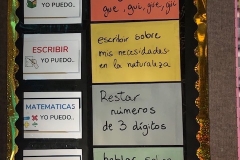 YO PUEDO..
gue, gui, güe, güi
ESCRIBIR
YO PUEDO..
escribir sobre
mis necesidades
en la naturaleza
MATEMATICAS
YO PUEDO..
Restar
números
de 3 dígitos
hablar sobre